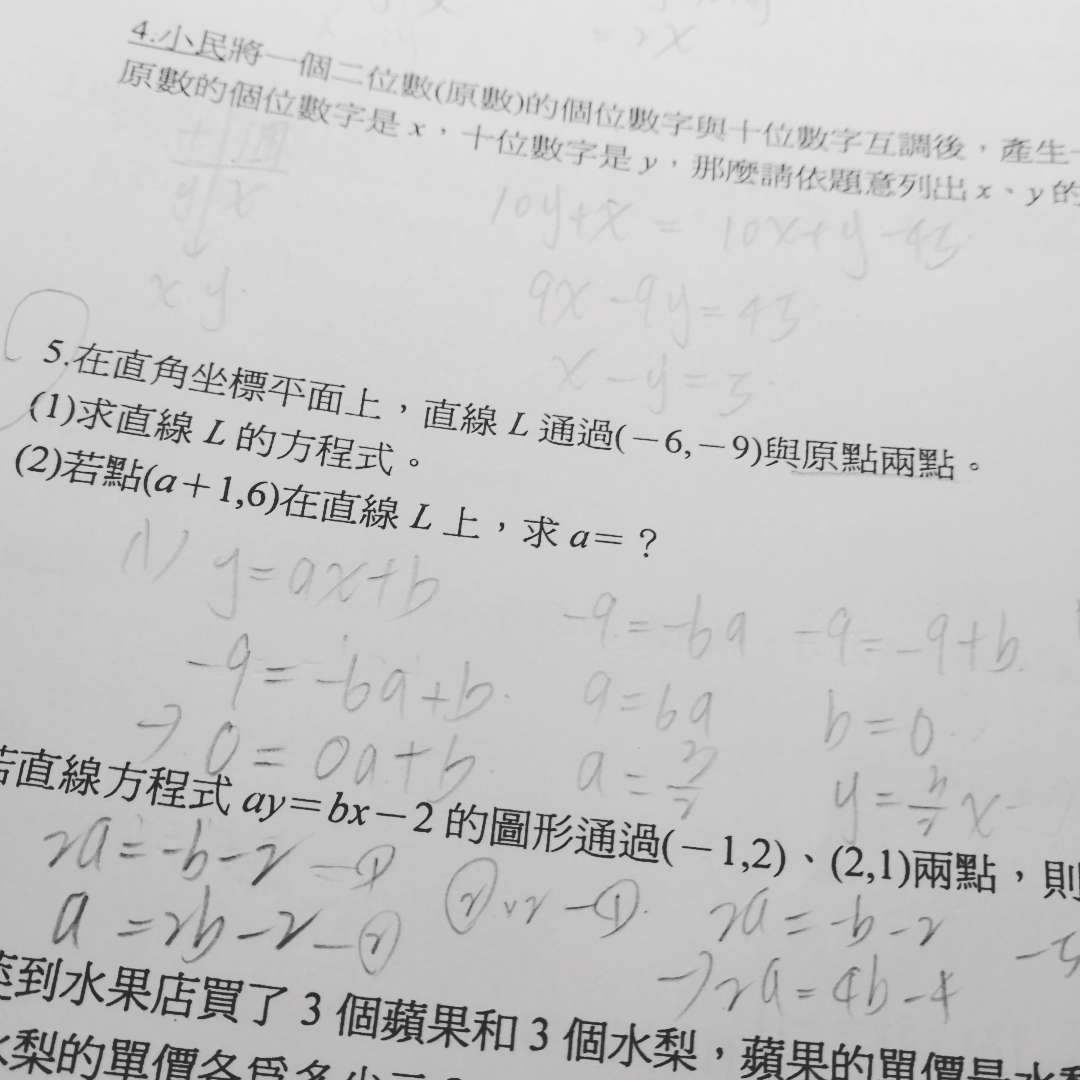 4.小民將一個二位數(原數)的個位數字與十位數字互調後，產生
原數的個位數字是 x，十位數字是 y，那麼請依題意列出 x、y 的
y x
x y
10y+x = 10x+y-45
9x-9y=45
x-y=5
5.在直角坐標平面上，直線 L 通過(－6,－9)與原點兩點。
(1)求直線 L 的方程式。
(2)若點(a＋1,6)在直線 L 上，求 a=？
(1) y=ax+b
-9=-6a+b
0=0a+b
-9=-6a
9=6a
-9=-9+b
b=0
若直線方程式 ay=bx－2 的圖形通過(－1,2)、(2,1)兩點，則
2a=-b-2-①
a=2b-2-②
2a=-b-2
-)2a=4b-4
到水果店買了 3 個蘋果和 3 個水梨，蘋果的單價是水
梨的單價各為多少元